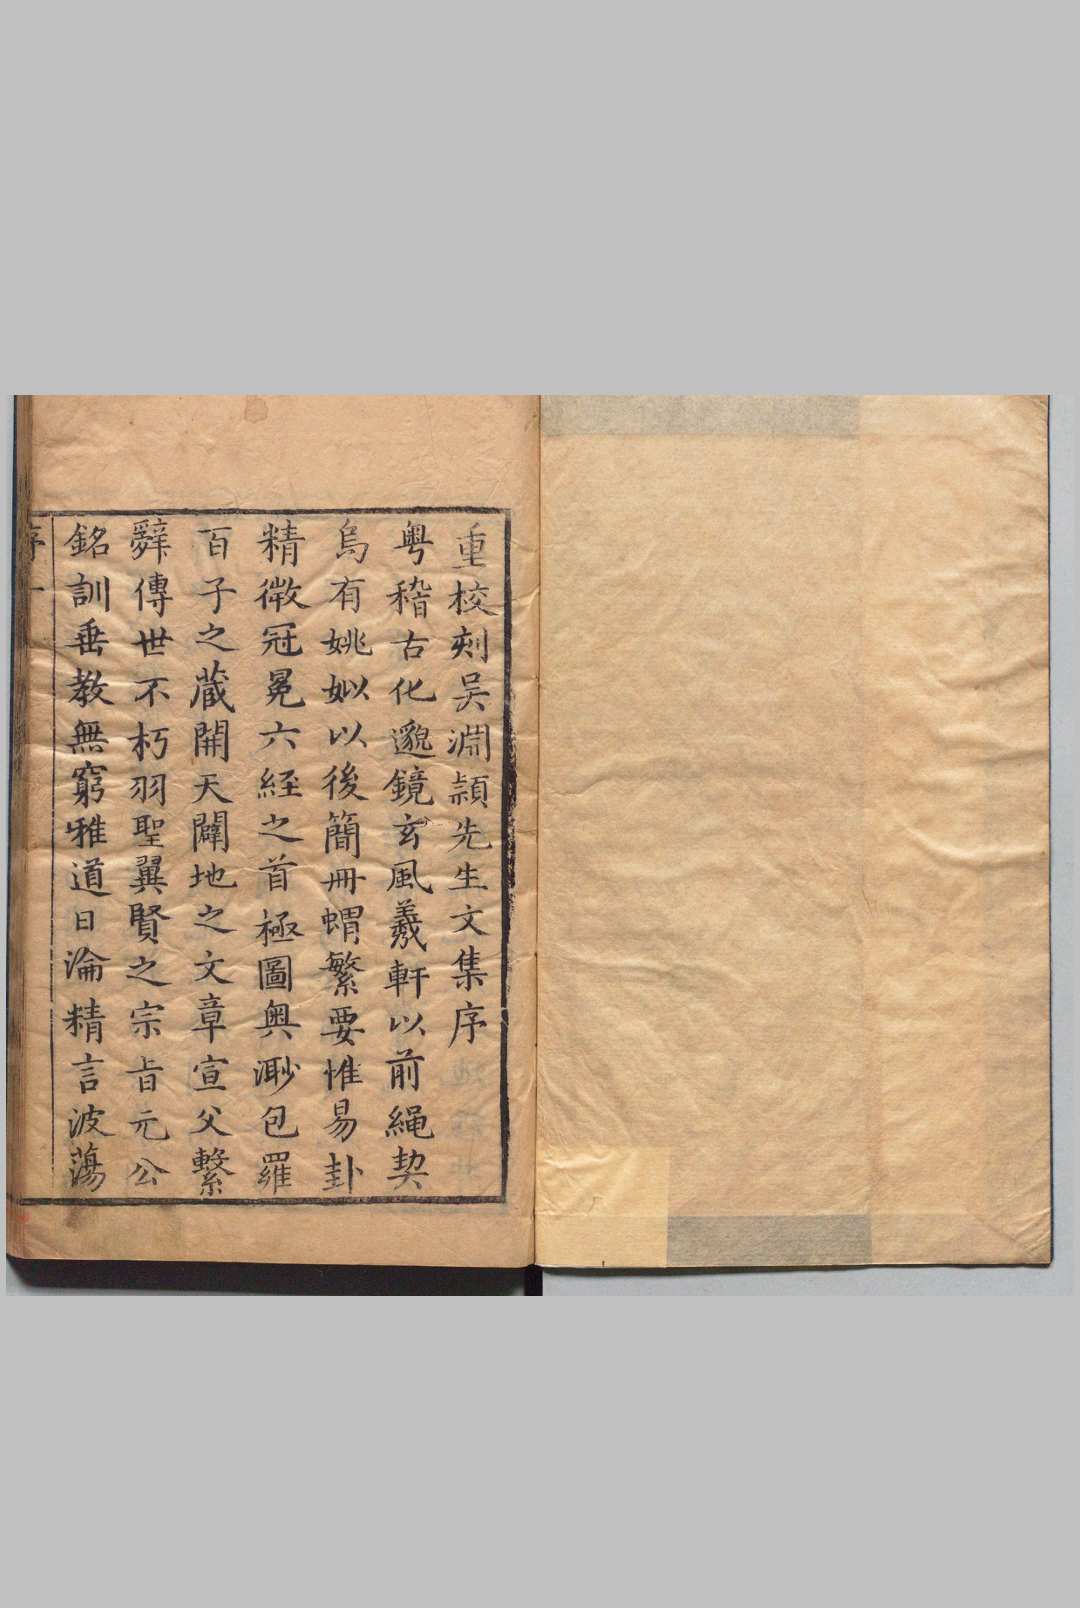 重校刻吴淵頴先生文集序
粤稽古化邈鏡玄風羲軒以前繩契
烏有姚姒以後簡冊蝟繁要惟易卦
精微冠冕六經之首極圖奥渺包羅
百子之蔵開天闢地之文章宣父繫
辭傳世不朽羽聖翼賢之宗旨元公
銘訓垂教無窮雅道日淪精言波蕩
序一